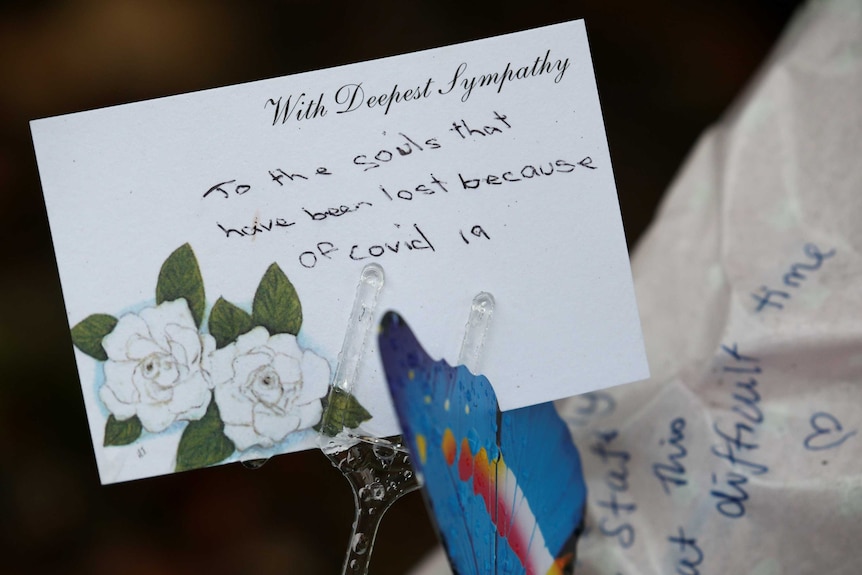 With Deepest Sympathy
To the souls that
have been lost because
of covid 19
this
at difficult time